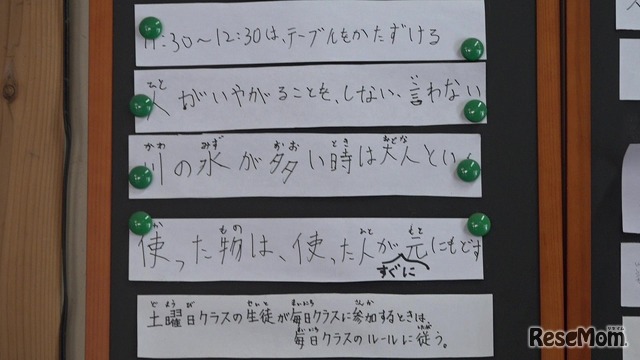 11:30〜12:30は、テーブルもかたずける
ひと い
人がいやがることを、しない、言わない
かわ みず おお とき おとな
川の水が多い時は大人とい
か もの ひと もと
使った物は、使った人が元にもどす
すぐに
ど よう び せいと まいにち さんか
土曜日クラスの生徒が毎日クラスに参加するときは、
まいにち したが
毎日クラスのルールに従う。
ReseMom